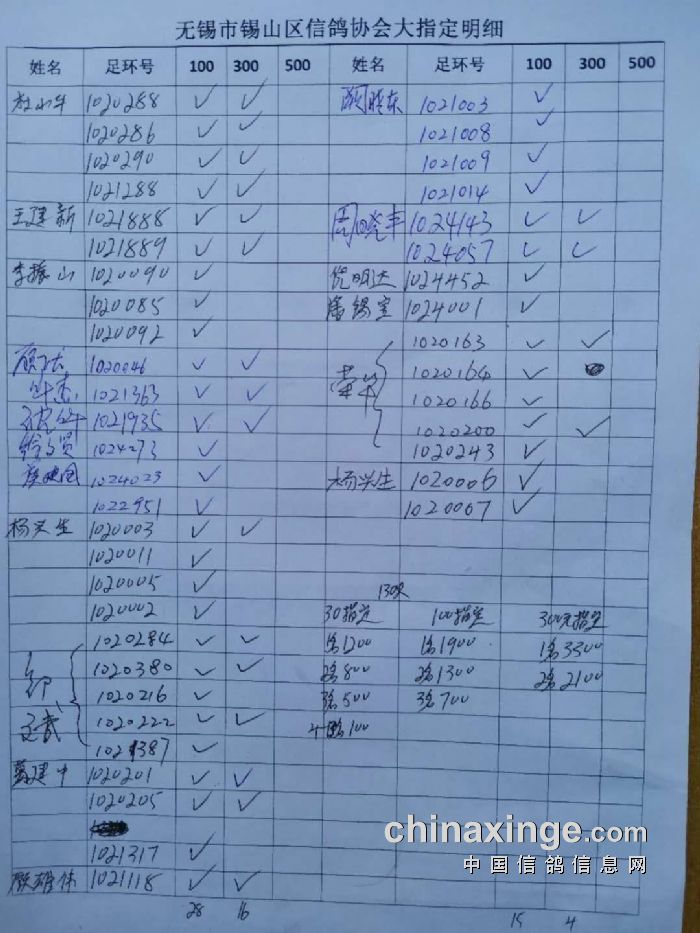 无锡市锡山区信鸽协会大指定明细
姓名 足环号 100 300 500 姓名 足环号 100 300 500
1020288 ✓ ✓ 1021003 ✓
1020286 ✓ ✓ 1021008 ✓
1020290 ✓ ✓ 1021009 ✓
1021288 ✓ ✓ 1021014 ✓
王建新 1021888 ✓ ✓ 周晓丰 1024143 ✓ ✓
1021889 ✓ ✓ 1024057 ✓ ✓
李振山 1020090 ✓ 倪明达 1024452 ✓
1020085 ✓ 潘锡奎 1024001 ✓
1020092 ✓ 1020163 ✓ ✓
1020046 ✓ ✓ 荣华 1020164 ✓
1021363 ✓ ✓ 1020166 ✓
1021935 ✓ ✓ 1020200 ✓ ✓
1024273 ✓ 1020243 ✓
1024023 ✓ 杨兴生 1020006 ✓
1022951 ✓ 1020007 ✓
杨兴生 1020003 ✓ ✓
1020011 ✓
1020005 ✓ 130羽
1020002 ✓ 30指定 100指定 300元指定
1020284 ✓ ✓ 1名1200 1名1900 1名3300
1020380 ✓ ✓ 2名800 2名1300 2名2100
1020216 ✓ 3名500 3名700
文武 1020222 ✓ ✓ 4名100
1021387 ✓
葛建中 1020201 ✓ ✓
1020205 ✓ ✓
1021317 ✓
1021118 ✓ ✓
28 16 15 4
chinaxinge.com
中国信鸽信息网